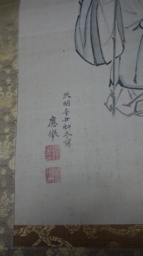 天明辛丑初冬寫
應舉